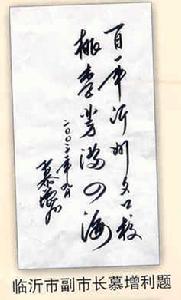 百年沂州名校
桃李芳满四海
二〇〇六年九月
慕增利
临沂市副市长慕增利题